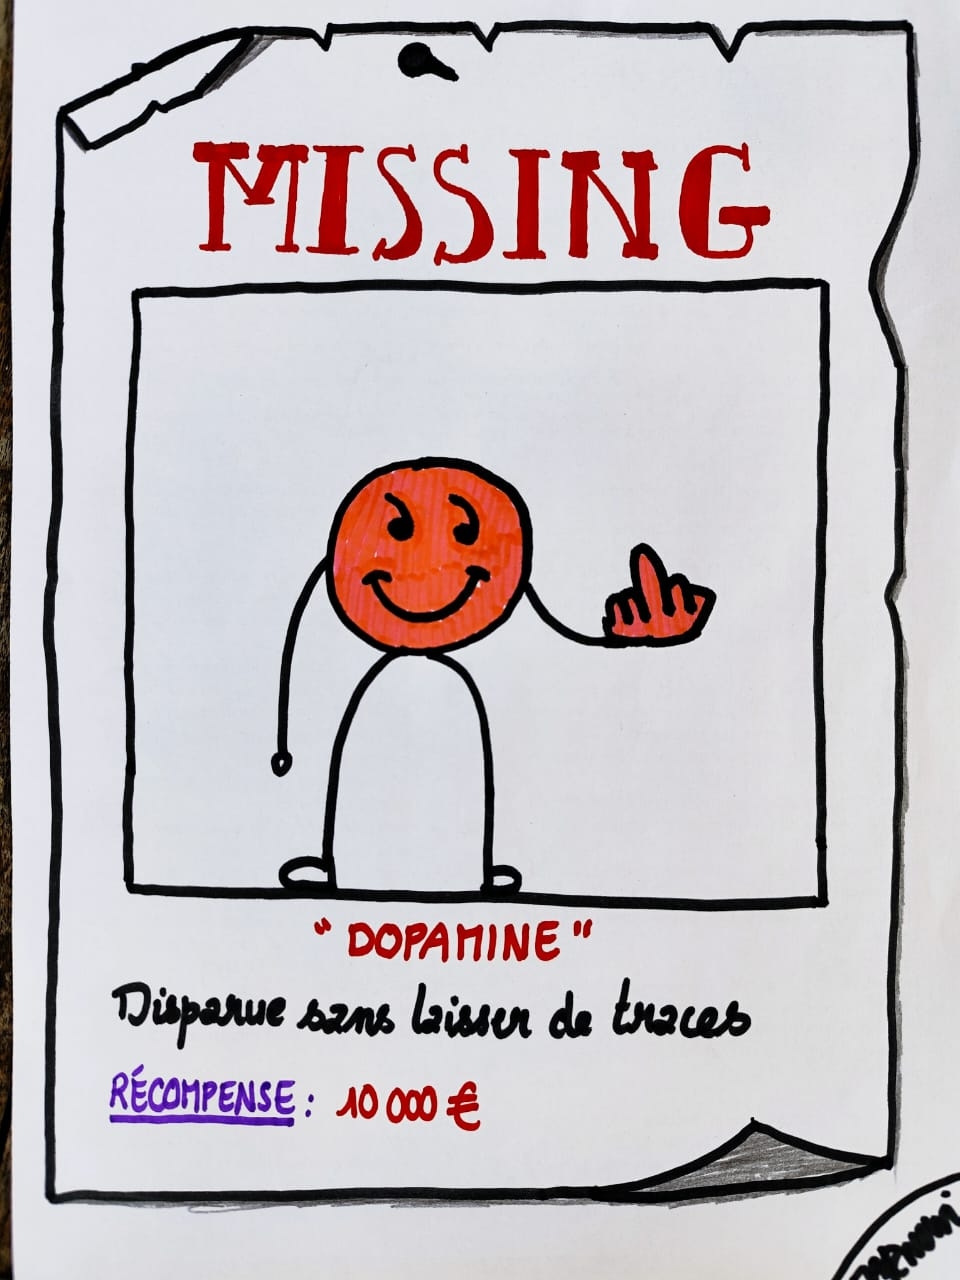 MISSING
“DOPAMINE”
Disparue sans laisser de traces
RÉCOMPENSE : 10 000 €